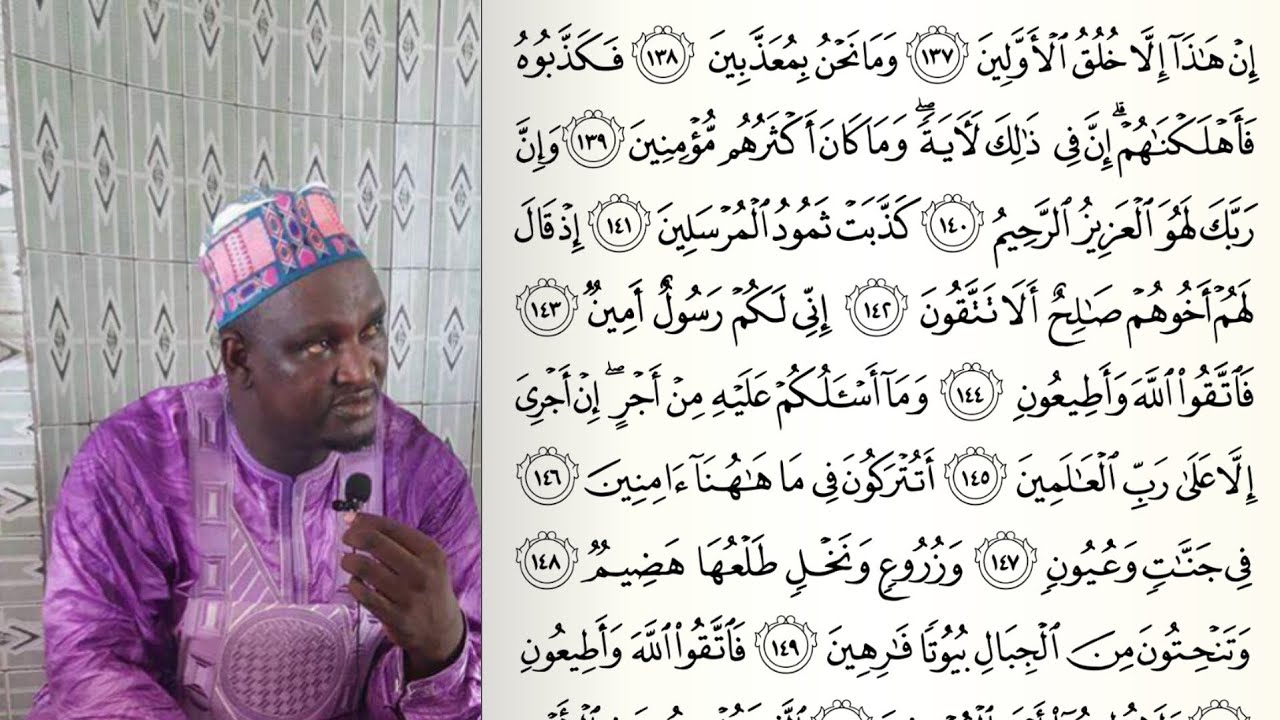 إِنْ هَٰذَآ إِلَّا خُلُقُ ٱلْأَوَّلِينَ ١٣٧ وَمَا نَحْنُ بِمُعَذَّبِينَ ١٣٨ فَكَذَّبُوهُ
فَأَهْلَكْنَٰهُمْ ۗ إِنَّ فِى ذَٰلِكَ لَأٓيَةً ۖ وَمَا كَانَ أَكْثَرُهُم مُّؤْمِنِينَ ١٣٩ وَإِنَّ
رَبَّكَ لَهُوَ ٱلْعَزِيزُ ٱلرَّحِيمُ ١٤٠ كَذَّبَتْ ثَمُودُ ٱلْمُرْسَلِينَ ١٤١ إِذْ قَالَ
لَهُمْ أَخُوهُمْ صَٰلِحٌ أَلَا تَتَّقُونَ ١٤٢ إِنِّى لَكُمْ رَسُولٌ أَمِينٌ ١٤٣
فَٱتَّقُوا۟ ٱللَّهَ وَأَطِيعُونِ ١٤٤ وَمَآ أَسْـَٔلُكُمْ عَلَيْهِ مِنْ أَجْرٍ ۖ إِنْ أَجْرِىَ
إِلَّا عَلَىٰ رَبِّ ٱلْعَٰلَمِينَ ١٤٥ أَتُتْرَكُونَ فِى مَا هَٰهُنَآ ءَامِنِينَ ١٤٦
فِى جَنَّٰتٍ وَعُيُونٍ ١٤٧ وَزُرُوعٍ وَنَخْلٍ طَلْعُهَا هَضِيمٌ ١٤٨
وَتَنْحِتُونَ مِنَ ٱلْجِبَالِ بُيُوتًا فَٰرِهِينَ ١٤٩ فَٱتَّقُوا۟ ٱللَّهَ وَأَطِيعُونِ